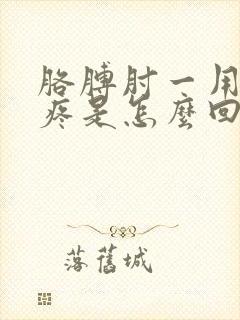 胳膊肘一用
疼是怎麼回
落舊城